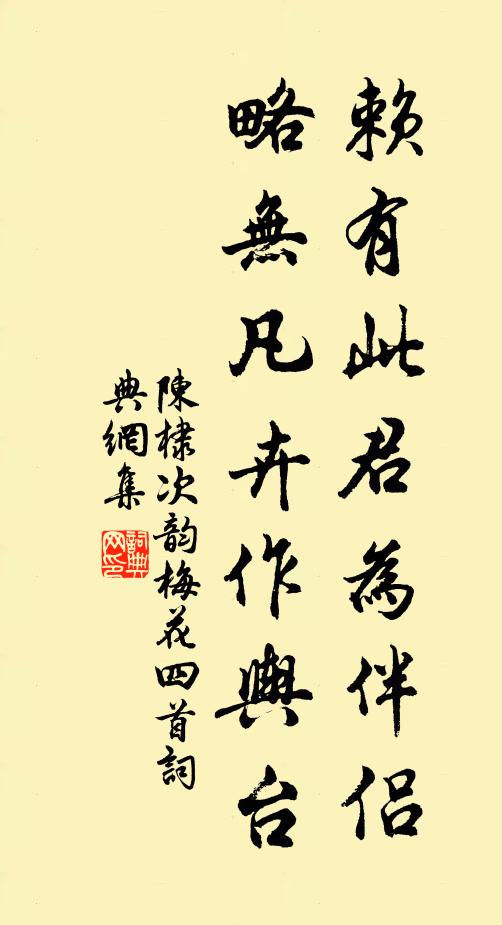 賴有此君為伴侶
略無凡卉作輿台
陳棣次韵梅花四首詞
典網集
詞典
网印